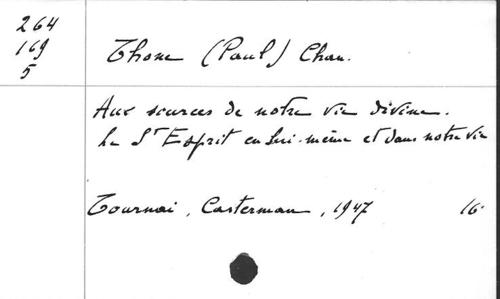 264
169
5
Thone (Paul) Chan.
Aux sources de notre vie divine.
Le St Esprit en Lui-même et dans notre vie
Tournai, Casterman, 1947 16°